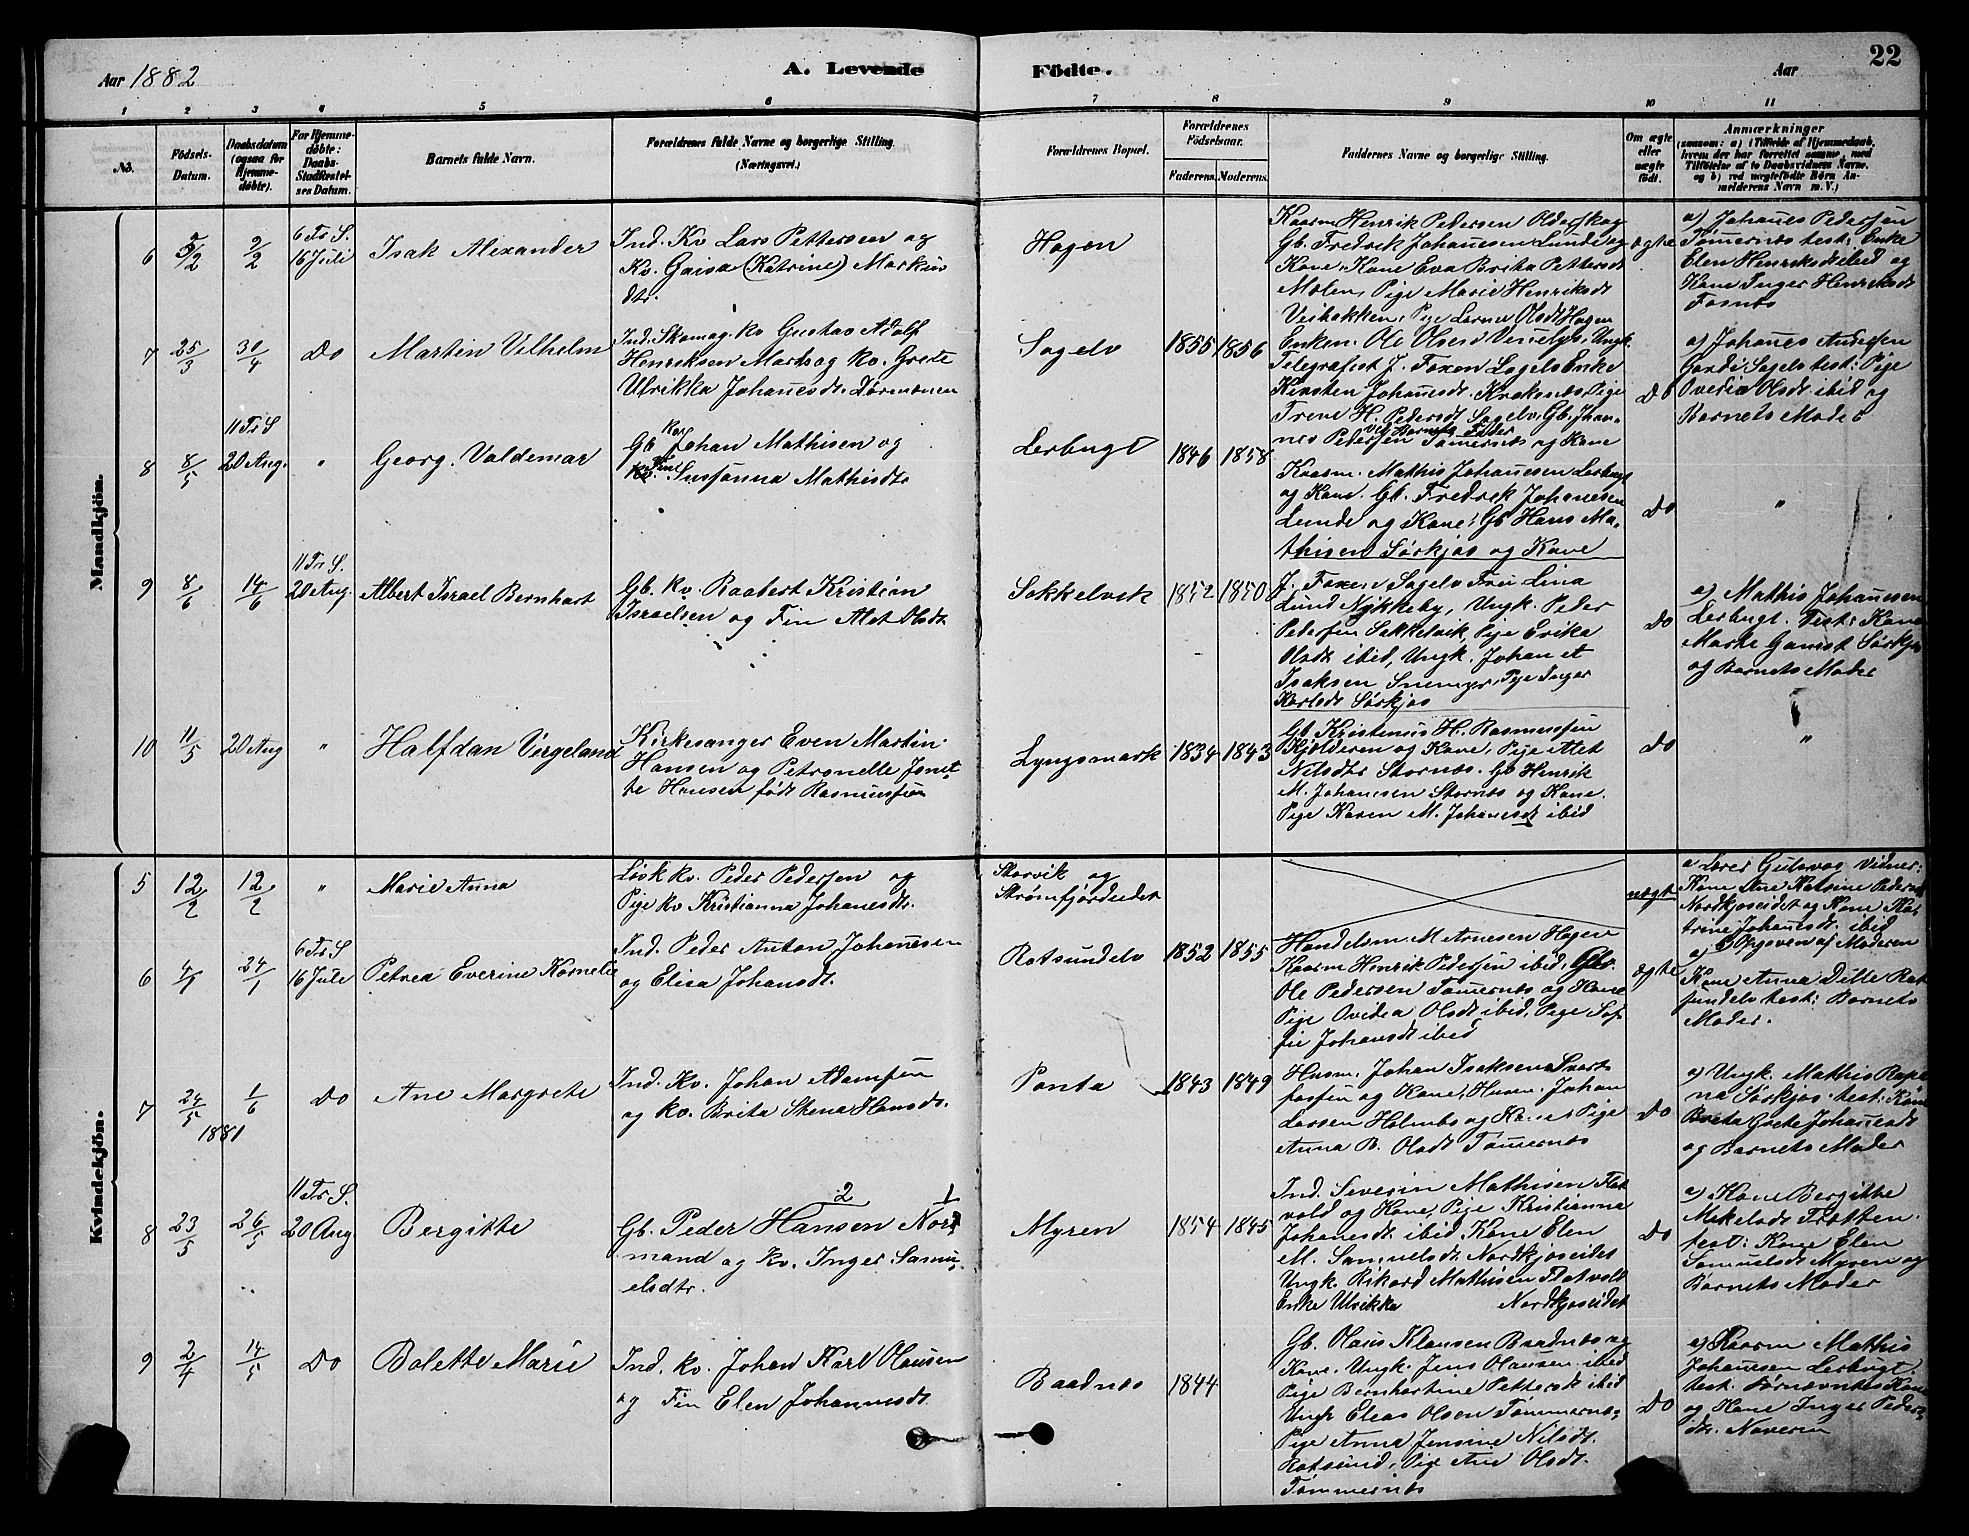 22
Aar 1882
A. Levende
Födte.
Aar
1 2 3 4 5 6 7 8 9 10 11
No.
Födsels-
Datum.
Daabsdatum
(ogsaa for
Hjemme-
døbte).
For Hjemme-
døbte:
Daabs-
Stadfæstel-
ses Datum.
Barnets fulde Navn.
Forældrenes fulde Navne og borgerlige Stilling.
(Næringsvei.)
Forældrenes Bopæl.
Forældrenes
Födselsaar.
Faderens. Moderens.
Faddernes Navne og borgerlige Stilling.
Om ægte
eller
uægte
födt.
Anmærkninger
(saasom: a) i Tilfælde af Hjemmedaab,
hvem der har forrettet samme, med
Tilföielse af to Daabsvidners Navne,
og b) ved uægtefödte Börn An-
melderens Navn m. V.)
Mandkjön.
6
5/2
9/2
6 Tr. S.
16 Juli
Isak Alexander
Ind. Kv Lars Pettersen og
Kv. Gaisa (Katrine) Markus
dtr.
Hagen
Kaarm Henrik Pedersen Olderskog
Gb. Fredrik Johannesen Lunde og
Kone, Kone Eva Brita Pettersdt
Molen, Pige Marie Henriksdt
ægte
a) Johanes Pedersen
Tømernes test: Enke
Elen Henriksdt ibid og
Kone Inger Henriksdt
7
25/3
30/4
Do
Martin Vilhelm
Ind. Skomag. kv Gustav Adolf
Henriksen Marts og kv. Grete
Ulrikka Johanesdt.
Sagelv
1855
1856
Enken. Ole Olsen
Telegrafist J. Foxen Sagelv Enke
Kirsten Johanesdt. Kraknes, Pige
Trine H. Pedersdt Sagelv, Gb. Johan-
nes Pedersen Tømernes og Kone
Do
a) Johanes Andersen
Sagelv test: Pige
Ovedia Olsdt ibid og
Barnets Moder
8
8/5
11 Tr S
20 Aug.
"
Georg. Valdemar
Gb Kv Johan Mathisen og
Fin Susanna Mathisdtr
Lerbugt
1846
1858
Kaarm. Mathis Johanesen Lerbugt
og Kone. Gb. Fredrik Johanesen
Lunde og Kone, Gb Hans Ma-
thisen Sørkjos og Kone
Do
"
9
8/6
14/6
11 Tr S.
20 Aug.
Albert Israel Bernhart
Gb. kv. Raabert Kristian
Israelsen og Fin Alet Olsdt
Sakkelvik
1852
1850
J. Foxen Sagelv Fru Lina
Lund Nykkeby, Ungk. Peder
Pedersen Sakkelvik, Pige Erika
Olsdt ibid, Ungk. Johan
Isaksen Snemyr, Pige Inger
Karlsdt Sørkjos
Do
a) Mathis Johanesen
Lerbugt. Test: Kone
Marte Gamst Sørkjos
og Barnets Moder
10
11/5
20 Aug
"
Halfdan Vergeland
Kirkesanger Even Martin
Hansen og Petronelle Jonet-
te Hansen født Rasmussen
Lyngsmark
1834
1843
Gb. Kristinus H. Rasmussen
Kjolderen og Kone, Pige Alet
Nilsdtr Stornes. Gb Henrik
M. Johanesen Stornes og Kone.
Pige Karen M. Johanesdt ibid
Do
"
Kvindekjön.
5
12/2
12/2
"
Marie Anna
Løsk kv. Peder Pedersen og
Pige kv Kristianna Johanesdt.
Storvik og
Strømfjordeidet
uægte
a Lærer Gulsvog Vidner:
Kone Ane Katrine Peders
Nordkjoseidet og Kone Kat-
trine Johanesdt. ibid
b) Opgiven af Moderen
6
4/1
24/1
6 Tr S
16 Jule
Petrea Everine Kornelie
Ind. Peder Anton Johannesen
og Elisa Johansdt.
Rotsundelv
1852
1855
Handelsm M. Arnesen Hagen
Kaarm Henrik Pedersen ibid, Gbr.
Ole Pedersen Tømernes og Kone
Pige Ovedia Olsdt ibid, Pige Sof-
fie Johansdt ibid
ægte
a)
Kone Anna Dille Rot-
sundelv test: Barnets
Moder.
7
24/5
1/6
1881
Do
Ane Margrete
Ind. Kv. Johan Adamsen
og kv. Brita Stena Hansdt.
Ponta
1843
1849
Husm. Johan Isaksen Svart
fossen og Kone, Husm. Johan
Larsen Holmbo og Kone, Pige
Anna B. Olsdt Tømernes
Do
a) Ungk. Mathis Rape
na Sørkjos. test: Kone
Brita Grete Johanesdt
og Barnets Moder
8
23/5
26/5
11 Tr. S.
20 Aug
Bergitte
2 1
Gb. Peder Hansen Nor
mand og kv. Inger Samu-
elsdtr.
Myren
1854
1845
Ind. Severin Mathisen Flat
vold og Kone, Pige Kristianna
Johanesdt ibid Kone Elen
M. Samuelsdt. Nordkjoseidet
Ungk. Rikard Mathisen Flatvold
Enke Ulrikka Nordkjoseidet
Do
a) Kone Bergitte
Mikelsdt Trætten.
test: Kone Elen
Samuelsdt Myren og
Barnets Moder
9
2/4
14/5
Do
Bolette Marie
Ind. kv. Johan Karl Olausen
og Fin Elen Johannesdt.
Baadnes
1844
Gb. Olaus Klausen Baadnes og
Kone. Ungk. Jens Olausen ibid
Pige Bernhartine Pettersdt ibid
Ungk Elias Olsen Tømmernes,
Pige Anna Jensine Nilsdt.
Rotsund, Pige Ane Olsdt.
Tømmernes
Do
a) Kaarm Mathis
Johanesen Lerbugt
test. Kone
og Kone Inger Peders-
dtr. Naveren